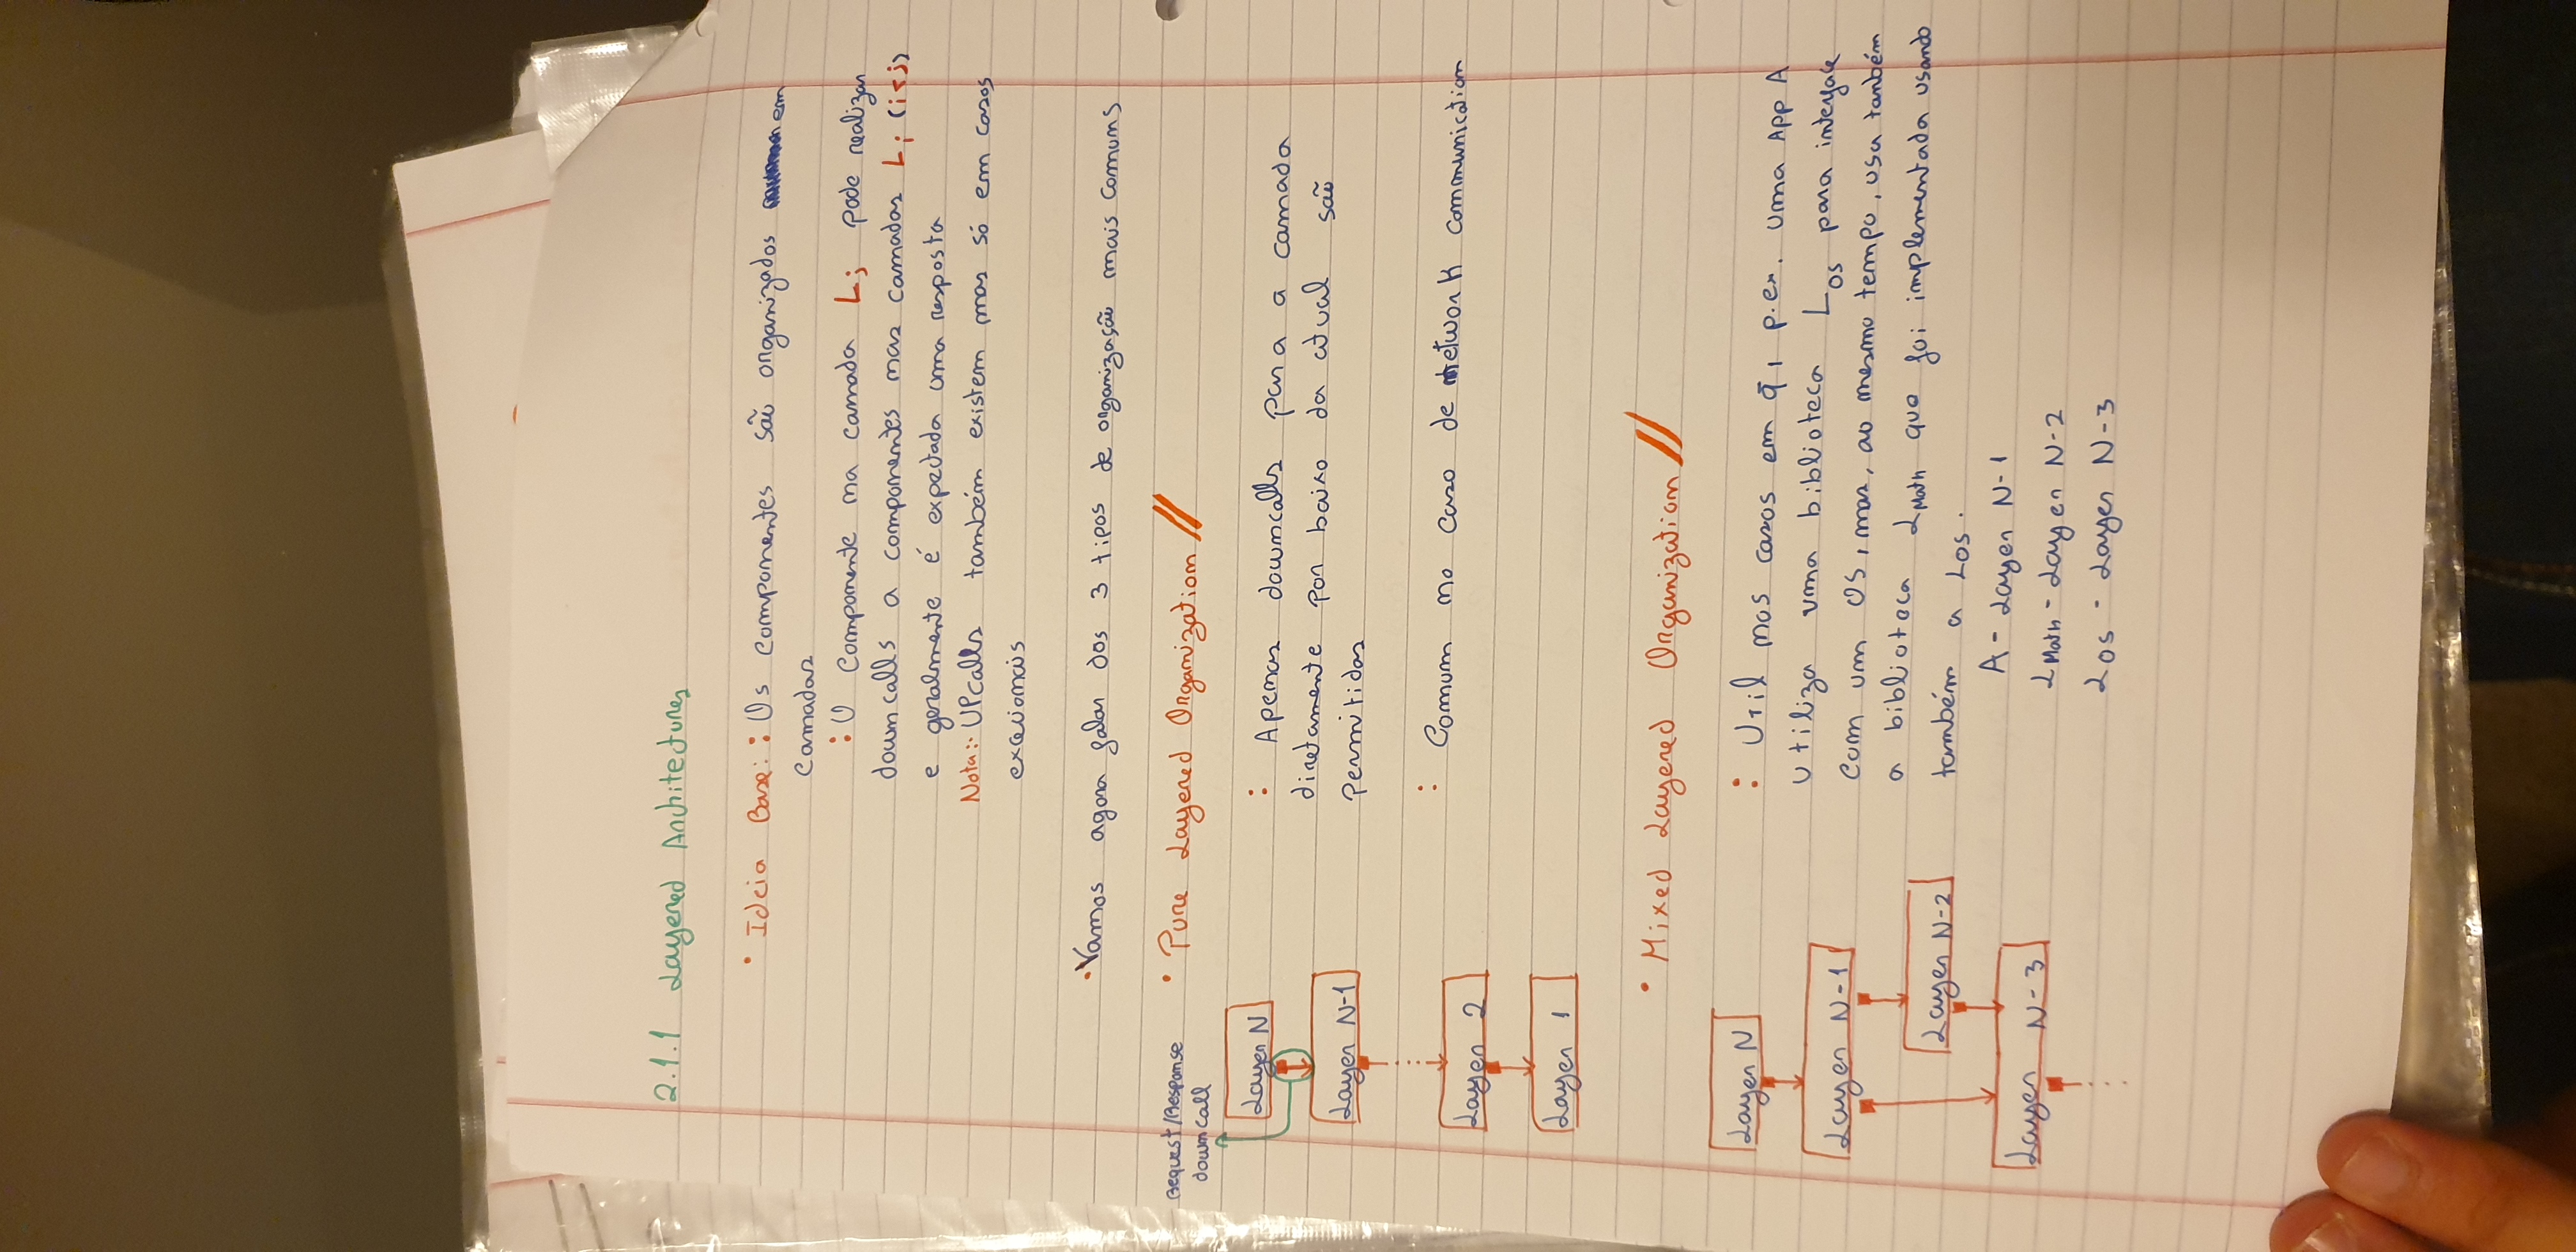 2.1.1 Layered Architectures
• Ideia Base: : Os componentes são organizados em
camadas
: O componente na camada Lj pode realizar
downcalls a componentes nas camadas Li (i<j)
e geralmente é expectada uma resposta
Nota:· UPcalls também existem mas só em casos
excecionais
• Vamos agora falar dos 3 tipos de organização mais comuns
Request/Response
downcall
• Pure Layered Organization //
Layer N
Layer N-1
Layer 2
Layer 1
: Apenas downcalls para a camada
diretamente por baixo da atual são
permitidas
: Comum no caso de network communication
• Mixed Layered Organization //
Layer N
Layer N-1
Layer N-2
Layer N-3
: Util nos casos em q̃, p.ex. uma App A
utiliza uma biblioteca LOS para interface
com um OS, mas, ao mesmo tempo, usa também
a biblioteca LMath que foi implementada usando
também a LOS.
A - Layer N-1
LMath - Layer N-2
LOS - Layer N-3